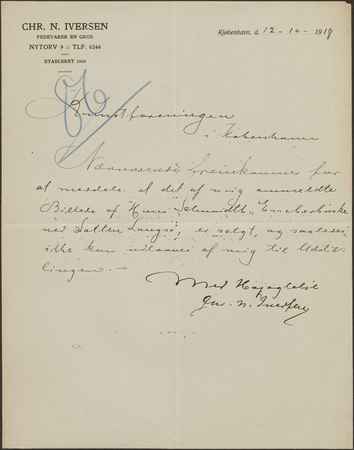 CHR. N. IVERSEN
FEDEVARER EN GROS
NYTORV 9 :: TLF. 6246
ETABLERET
Kjøbenhavn, d. 12-10-1917
Kunstforeningen
i København
Nærværende fremkommer for
at meddele, at det af mig anmeldte
Billede af Herr Schmidt,
ved Salten Langsø, er solgt, og saaledes
ikke kan udlaanes af mig til Udstil-
lingen.-
Med Højagtelse
Chr. N. Iversen